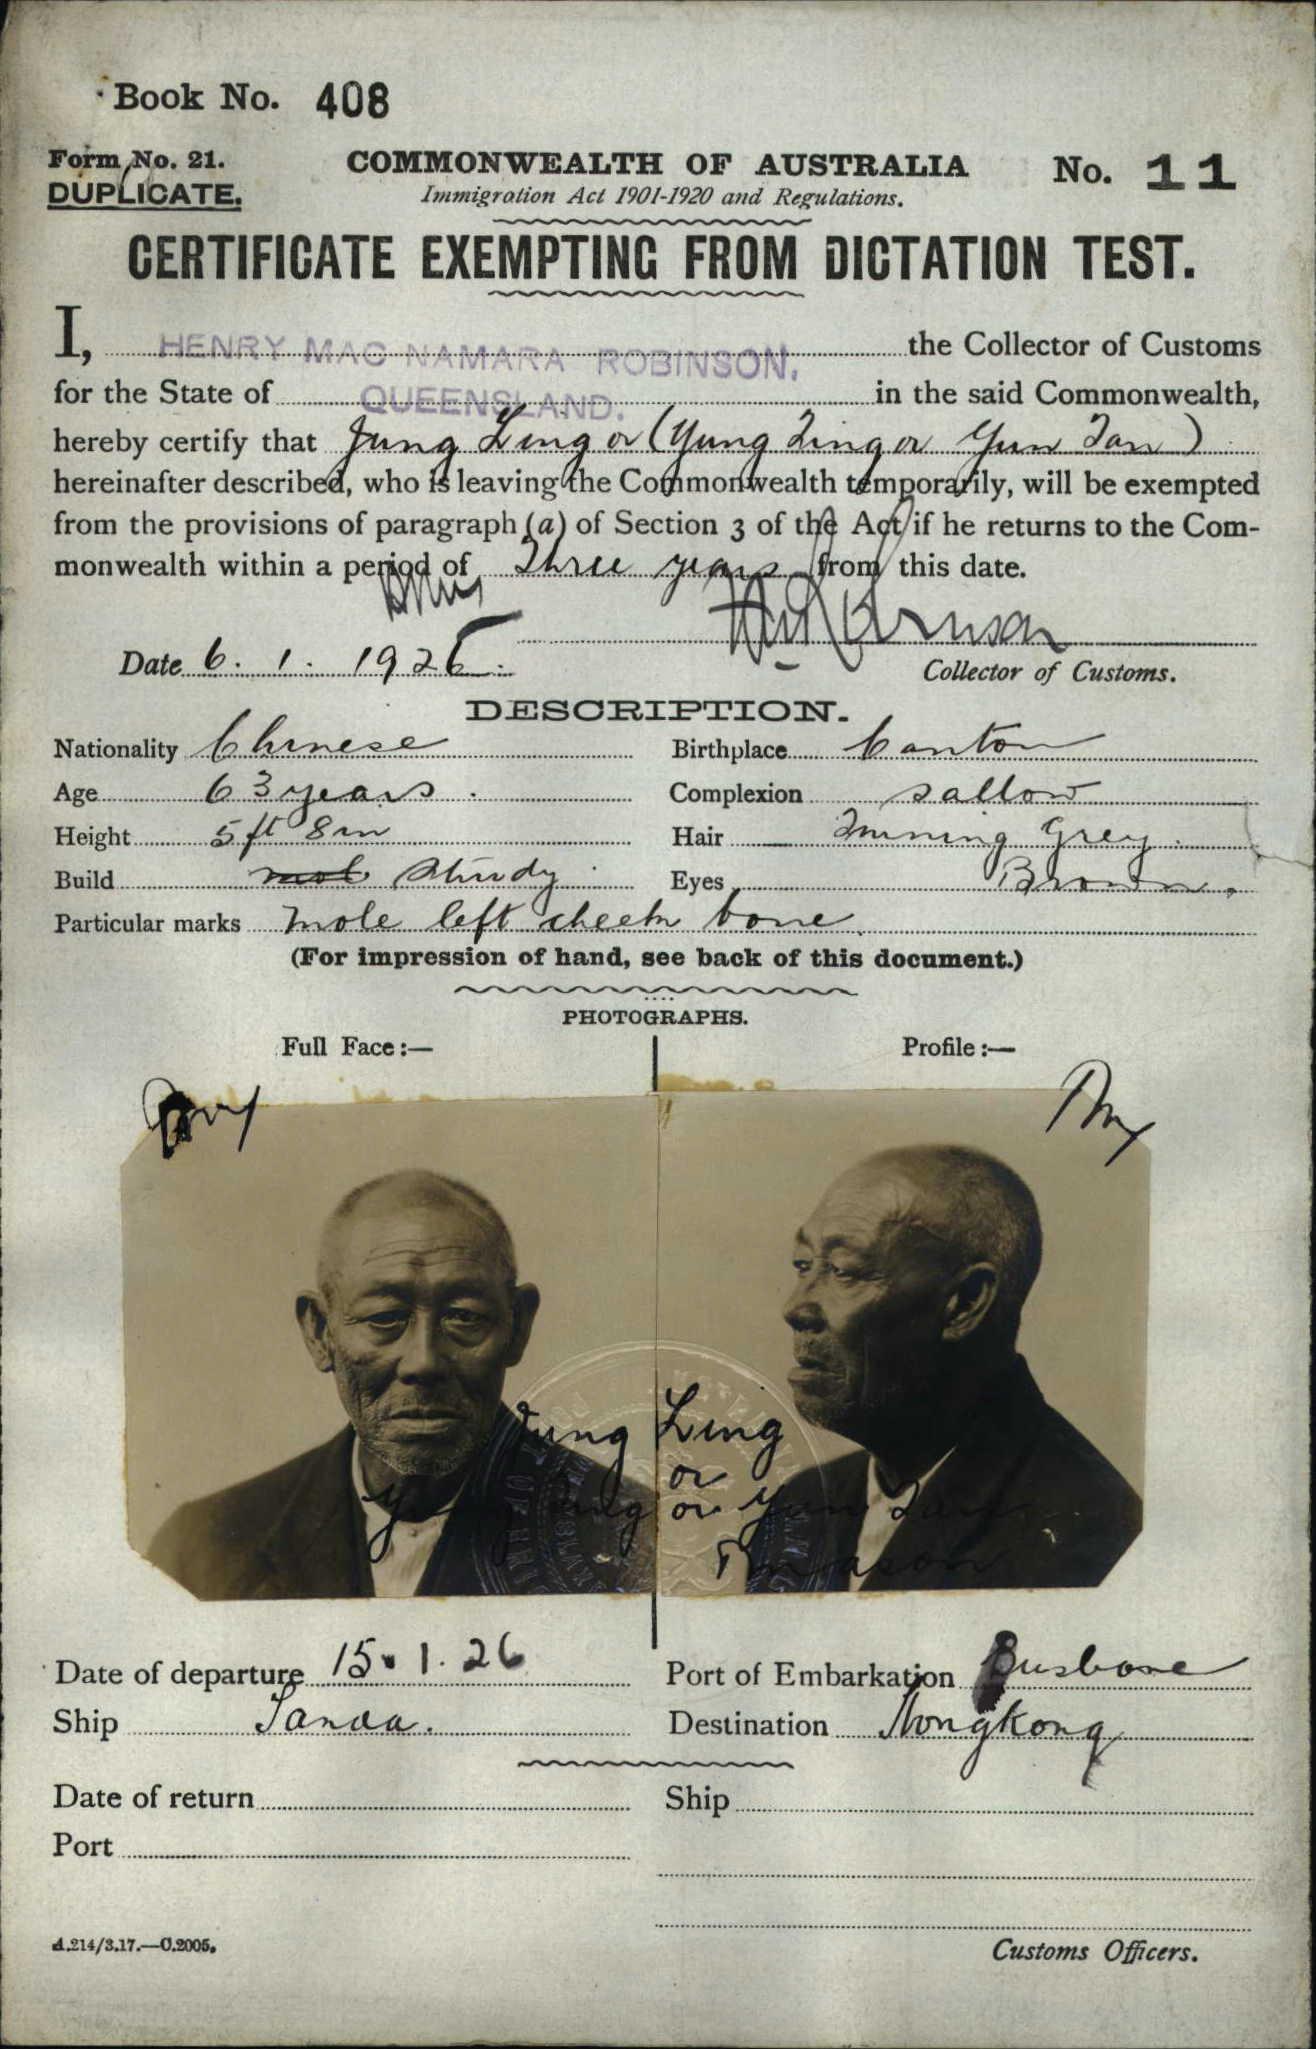 Book No. 408
Form No. 21.
DUPLICATE.
COMMONWEALTH OF AUSTRALIA
No. 11
Immigration Act 1901-1920 and Regulations.
CERTIFICATE EXEMPTING FROM DICTATION TEST.
I, HENRY MAC NAMARA ROBINSON, the Collector of Customs
for the State of QUEENSLAND. in the said Commonwealth,
hereby certify that Jung Ling or (Yung Ling or Yun Tan)
hereinafter described, who is leaving the Commonwealth temporarily, will be exempted
from the provisions of paragraph (a) of Section 3 of the Act if he returns to the Com-
monwealth within a period of Three years from this date.
Date 6. 1. 1926.
Collector of Customs.
DESCRIPTION.
Nationality Chinese Birthplace Canton
Age 63 years. Complexion sallow
Height 5 ft 8 in Hair Turning Grey.
Build Sturdy Eyes Brown.
Particular marks mole left cheek bone.
(For impression of hand, see back of this document.)
PHOTOGRAPHS.
Full Face:— Profile:—
Jung Ling
or
Yung Ling or Yun Tan
Date of departure 15. 1. 26 Port of Embarkation Brisbane
Ship Destination Hongkong
Date of return Ship
Port
Customs Officers.
A.214/3.17.—C.2005.